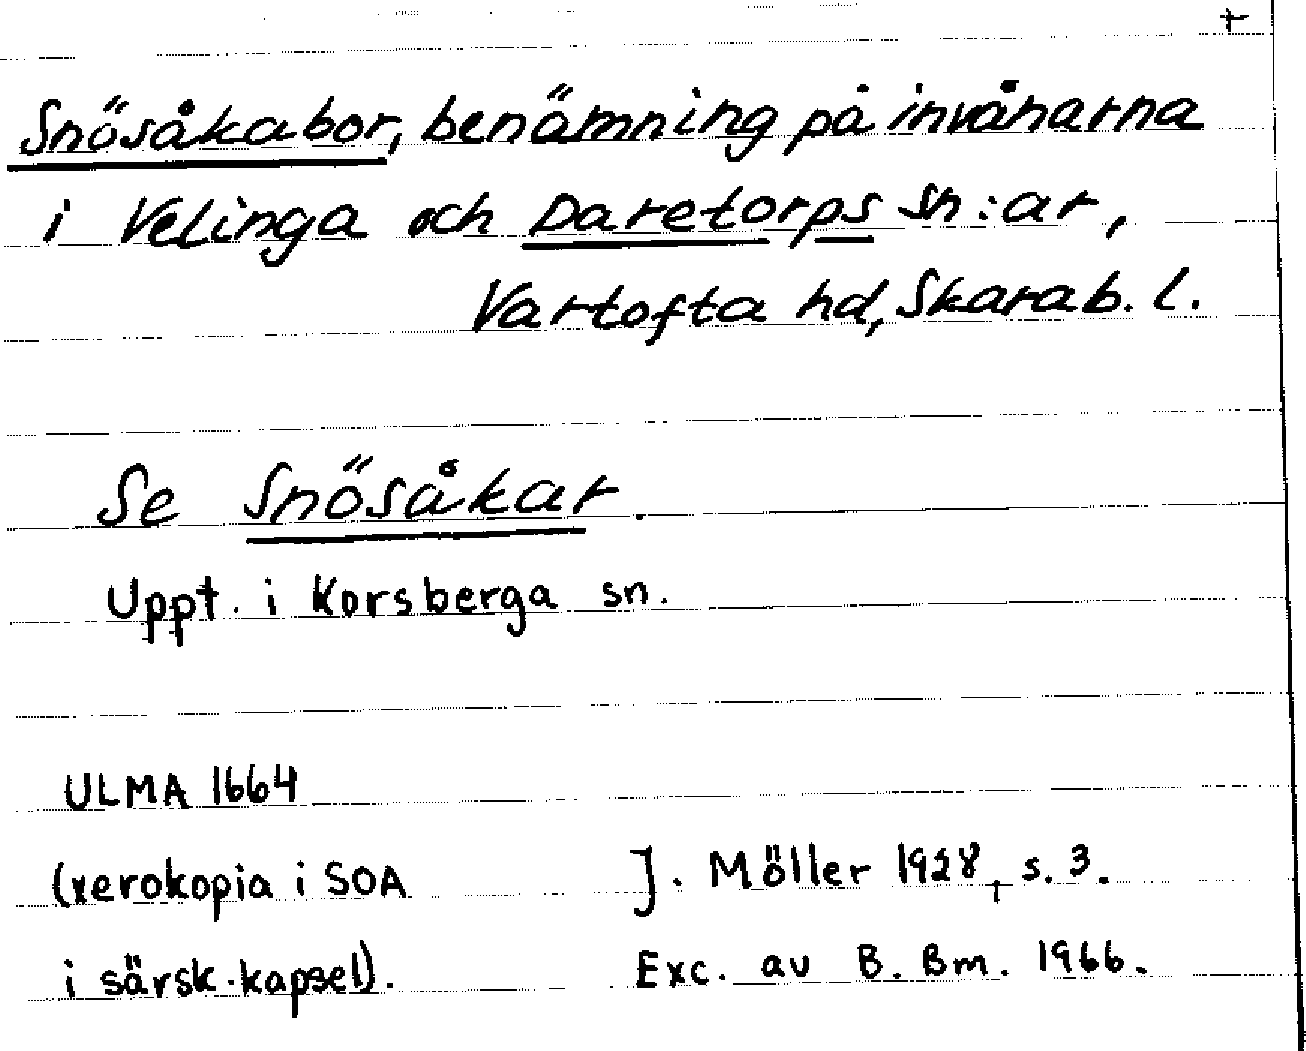 +
Snösåkabor, benämning på invånarna
i Velinga och Daretorps sn:ar,
Vartofta hd, Skarab. l.
Se Snösåkar.
Uppt. i Korsberga sn.
ULMA 1664
(xerokopia i SOA J. Möller 1928, s. 3.
i särsk. kapsel). Exc. av B. Bm. 1966.